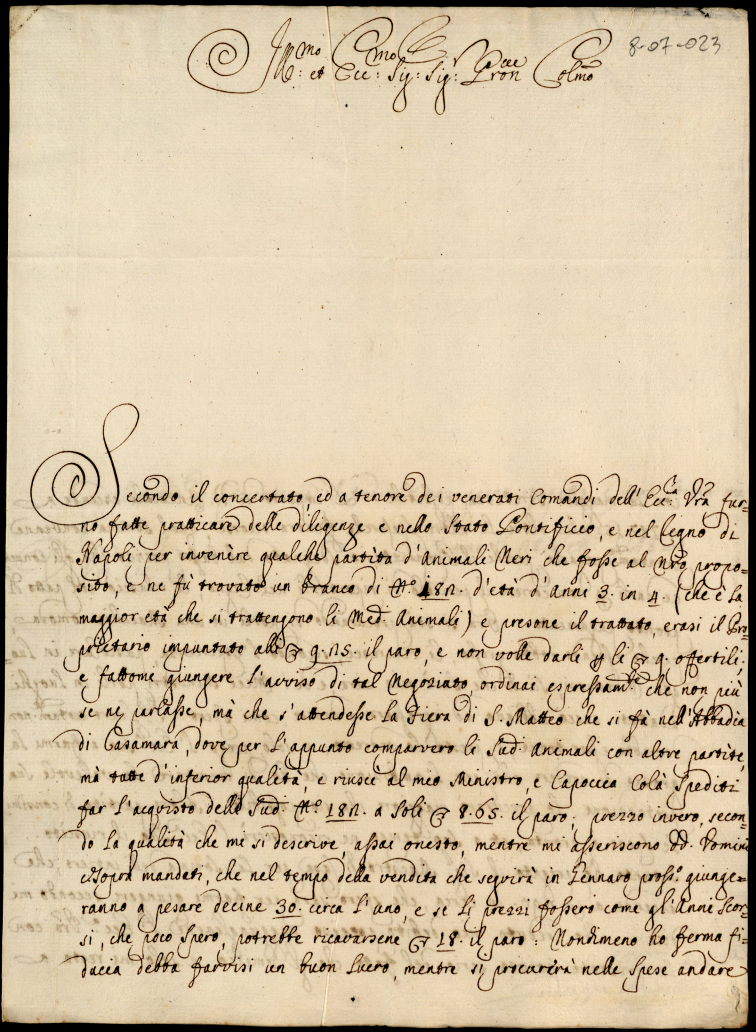 8-07-023
Ill:mo et Ecc:mo Sig: Sig: Pron Colmo
Secondo il concertato, ed a tenore dei venerati Comandi dell' Ecc:a Vra fur=
no fatte pratticare delle diligenze e nello Stato Pontificio, e nel Regno di
Napoli per invenire qualche partita d'Animali Neri che fosse al Nro propo=
sito, e ne fù trovato un branco di N:o 182. d'età d'Anni 3. in 4. (che è la
maggior età che si trattengono li Med: Animali) e presone il trattato, erasi il Pro=
prietario impuntato alli 9. 25. il paro, e non volle darli li 9. offertili;
e fattome giungere l'avviso di tal Negoziato, ordinai espressam:te che non più
se ne parlasse, mà che s'attendesse la Fiera di S. Matteo che si fà nell'Abbadia
di Casamara, dove per l'appunto comparvero li Sud: Animali con altre partite,
mà tutte d'inferior qualità, e riuscì al mio Ministro, e Capoccia Colà Spediti
far l'acquisto delle Sud: N:o 182. a soli 8.65. il paro; prezzo invero, secon=
do la qualità che mi si descrive, assai onesto, mentre mi asseriscono dd. Uomini
Sopra mandati, che nel tempo della vendita che seguirà in Gennaro pross:o giunge=
ranno a pesare decine 30. circa l'uno, e se li prezzi fossero come gl'Anni Scor=
si, che poco spero, potrebbe ricavarsene 18. il paro: Nondimeno ho ferma fi=
ducia debba farvisi un buon lucro, mentre si procurerà nelle Spese andare